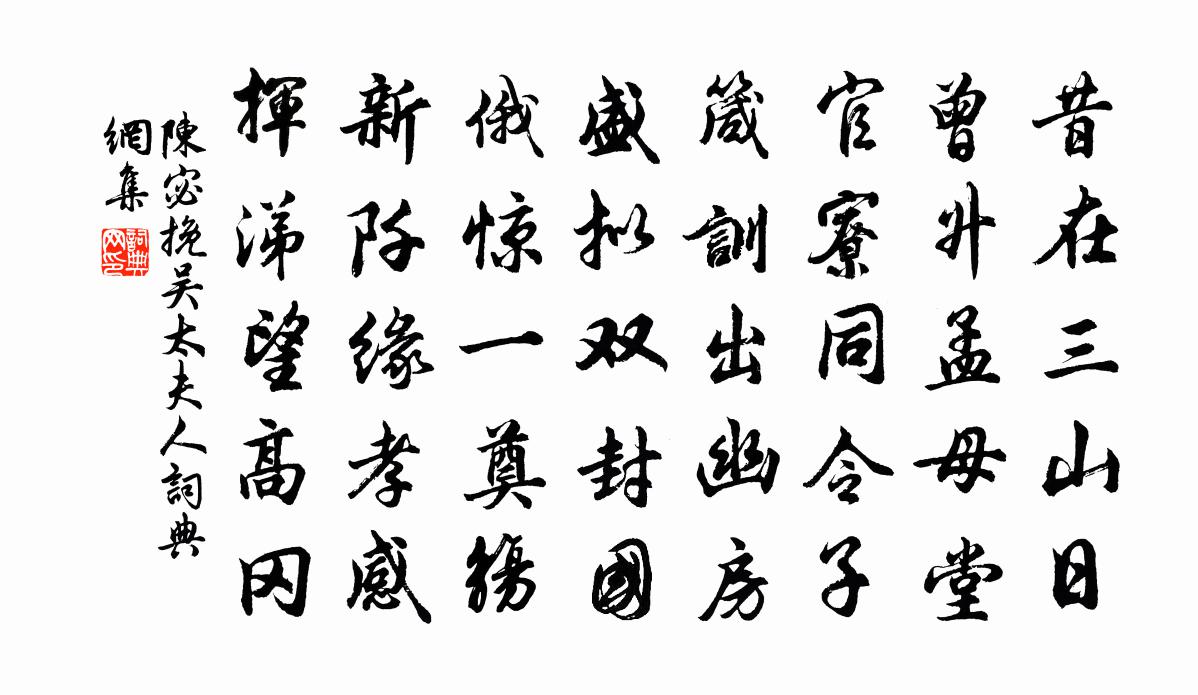 昔在三山日
曾升孟母堂
官寮同令子
箴訓出幽房
盛拟双封國
俄惊一奠觞
新阡缘孝感
揮涕望高冈
陳宓挽吴太夫人詞典
網集
詞典
网印